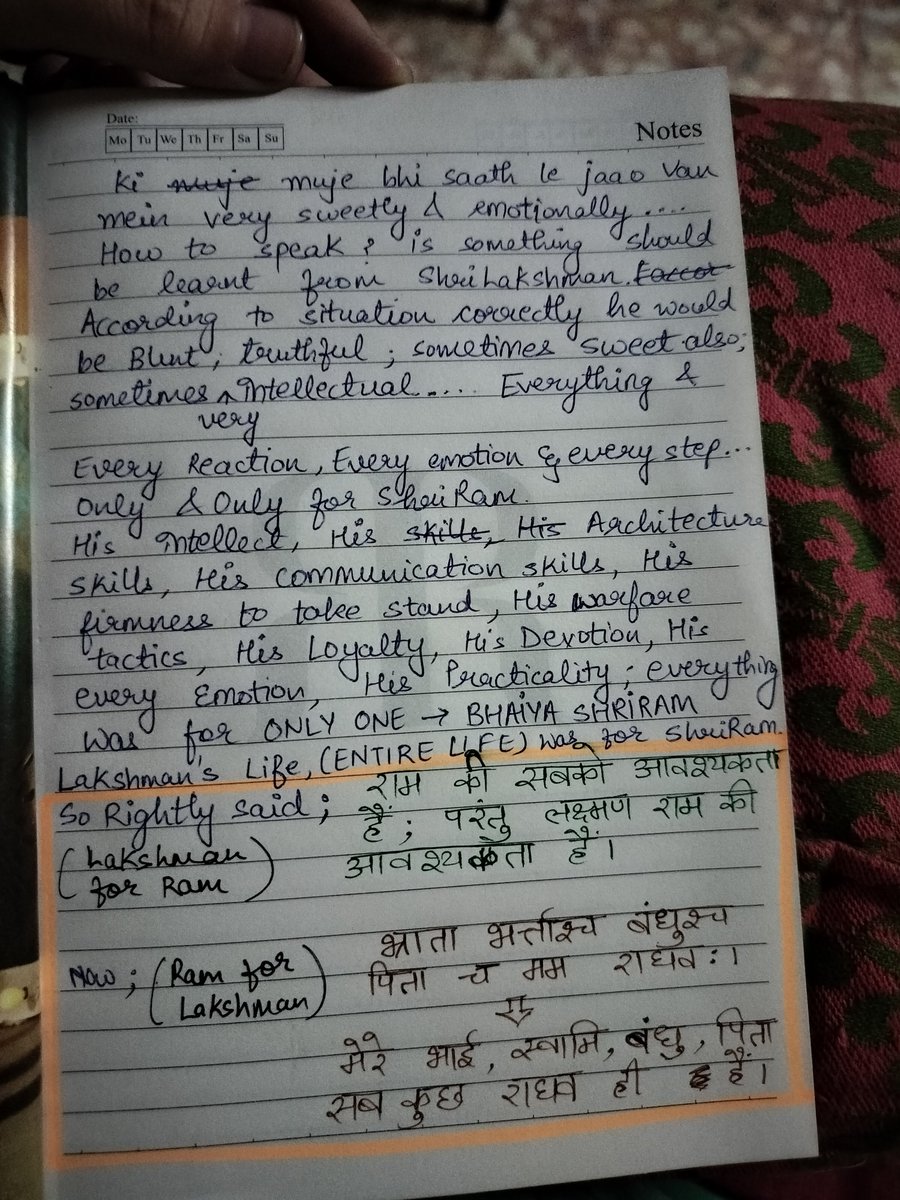 Date:
Mo Tu We Th Fr Sa Su
Notes
Ki muje muje bhi saath le jaao Van
mein very sweetly & emotionally.....
How to speak? is something should
be learnt from ShriLakshman.
According to situation correctly he would
be Blunt, truthful; sometimes sweet also;
sometimes ^ Intellectual..... Everything &
very
Every Reaction, Every emotion & every step...
Only & Only for ShriRam.
His Intellect, His skills, His Architecture
skills, His communication skills, His
firmness to take stand, His warfare
tactics, His Loyalty, His Devotion, His
every Emotion, His Practicality; everything
was for ONLY ONE → BHAIYA SHRIRAM
Lakshman's Life, (ENTIRE LIFE) was for ShriRam.
So Rightly said; राम की सबको आवश्यकता
(Lakshman for Ram) हैं; परंतु लक्ष्मण राम की
आवश्यकता हैं।
Now; (Ram for Lakshman) भ्राता भर्ताश्च बंधुश्च
पिता च मम राघवः।
मेरे भाई, स्वामि, बंधु, पिता
सब कुछ राघव ही हैं।